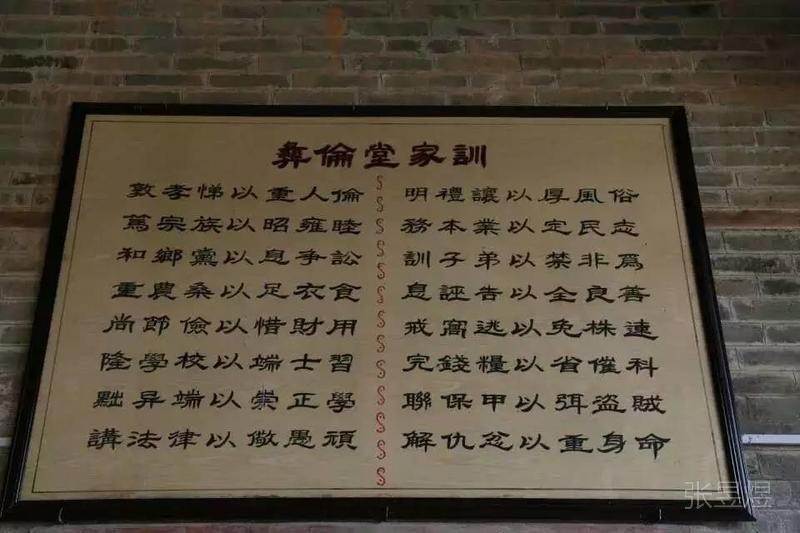 彝倫堂家訓
敦孝悌以重人倫
篤宗族以昭雍睦
和鄉黨以息爭訟
重農桑以足衣食
尚節儉以惜財用
隆學校以端士習
黜异端以崇正學
講法律以儆愚頑
明禮讓以厚風俗
務本業以定民志
訓子弟以禁非爲
息誣告以全良善
戒窩逃以免株連
完錢糧以省催科
聯保甲以弭盜賊
解仇忿以重身命
张昱煜